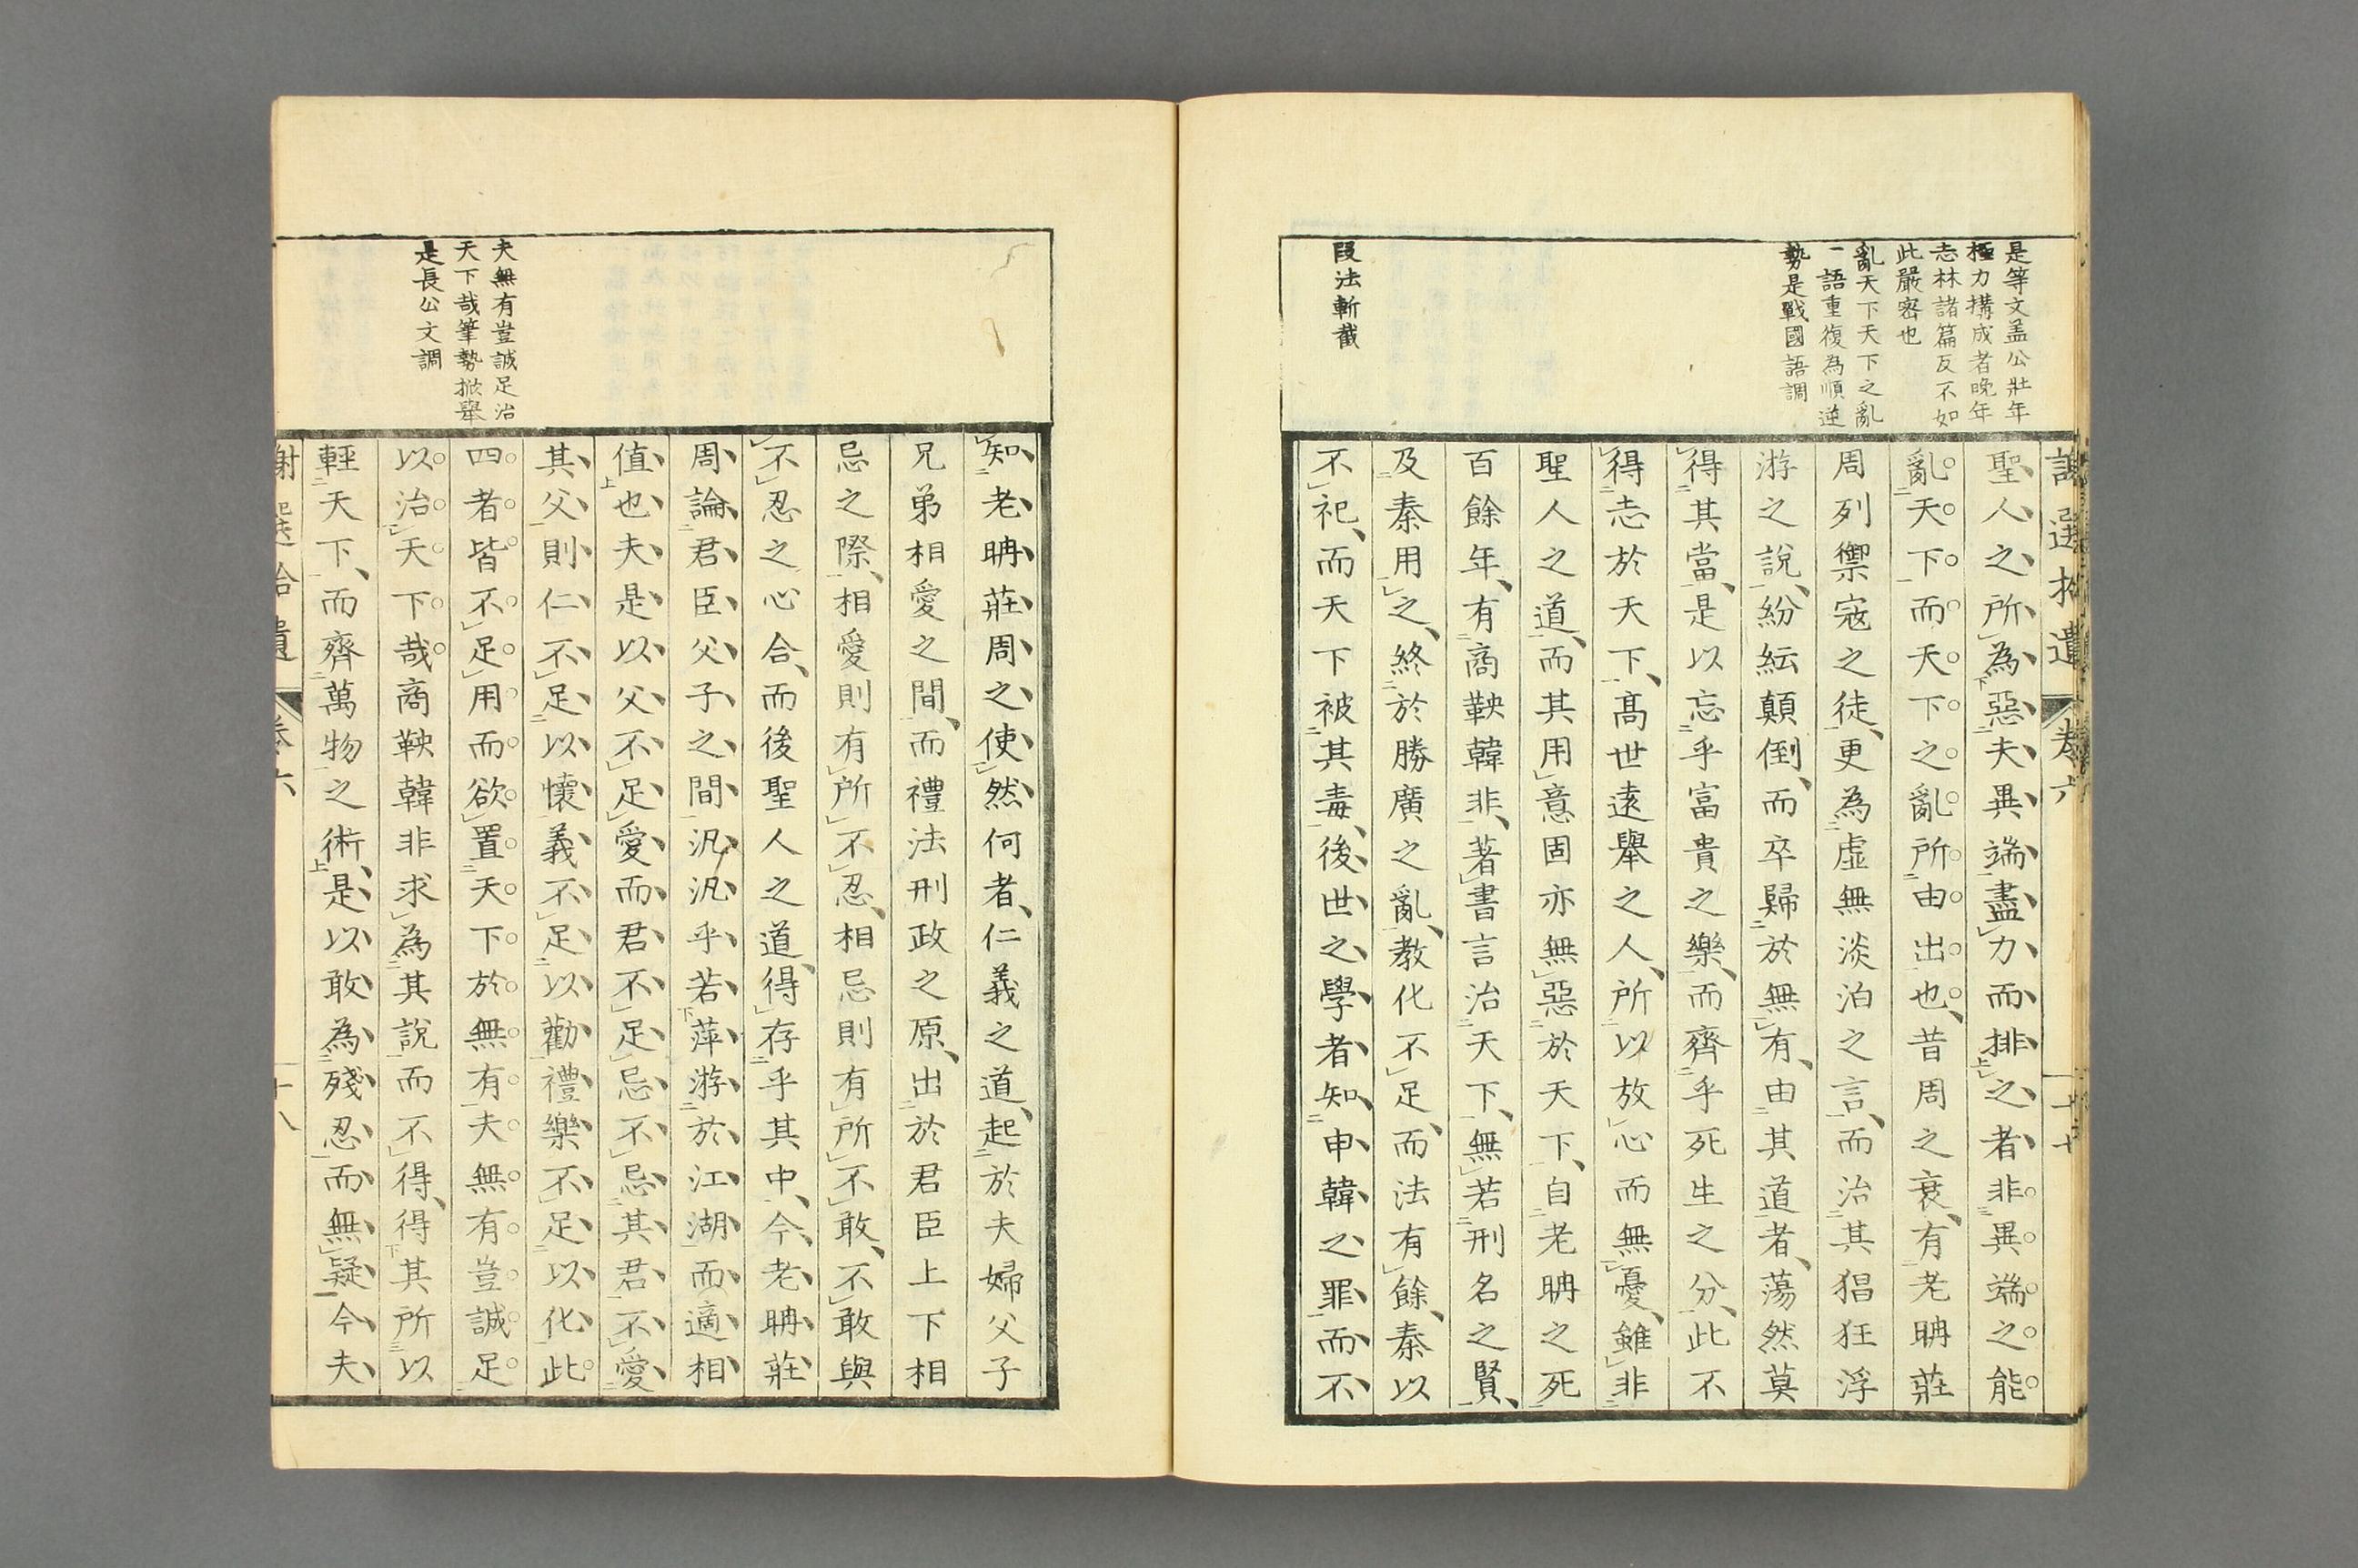 是等文盖公壯年
極力搆成者晚年
志林諸篇反不如
此嚴密也
亂天下天下之亂
一語重復為順逆
勢是戰國語調
段法斬截
聖人之所為惡夫異端盡力而排之者非異端之能
亂天下而天下之亂所由出也昔周之衰有老聃莊
周列禦寇之徒更為虛無淡泊之言而治其猖狂浮
游之說紛紜顛倒而卒歸於無有由其道者蕩然莫
得其當是以忘乎富貴之樂而齊乎死生之分此不
得志於天下高世遠舉之人所以放心而無憂雖非
聖人之道而其用意固亦無惡於天下自老聃之死
百餘年有商鞅韓非著書言治天下無若刑名之賢
及秦用之終於勝廣之亂教化不足而法有餘秦以
不祀而天下被其毒後世之學者知申韓之罪而不
夫無有豈誠足治
天下哉筆勢掀舉
是長公文調
知老聃莊周之使然何者仁義之道起於夫婦父子
兄弟相愛之間而禮法刑政之原出於君臣上下相
忌之際相愛則有所不忍相忌則有所不敢不敢與
不忍之心合而後聖人之道得存乎其中今老聃莊
周論君臣父子之間汎汎乎若萍游於江湖而適相
值也夫是以父不足愛而君不足忌不忌其君不愛
其父則仁不足以懷義不足以勸禮樂不足以化此
四者皆不足用而欲置天下於無有夫無有豈誠足
以治天下哉商鞅韓非求為其說而不得得其所以
輕天下而齊萬物之術是以敢為殘忍而無疑今夫
謝選拾遺 卷六 十八